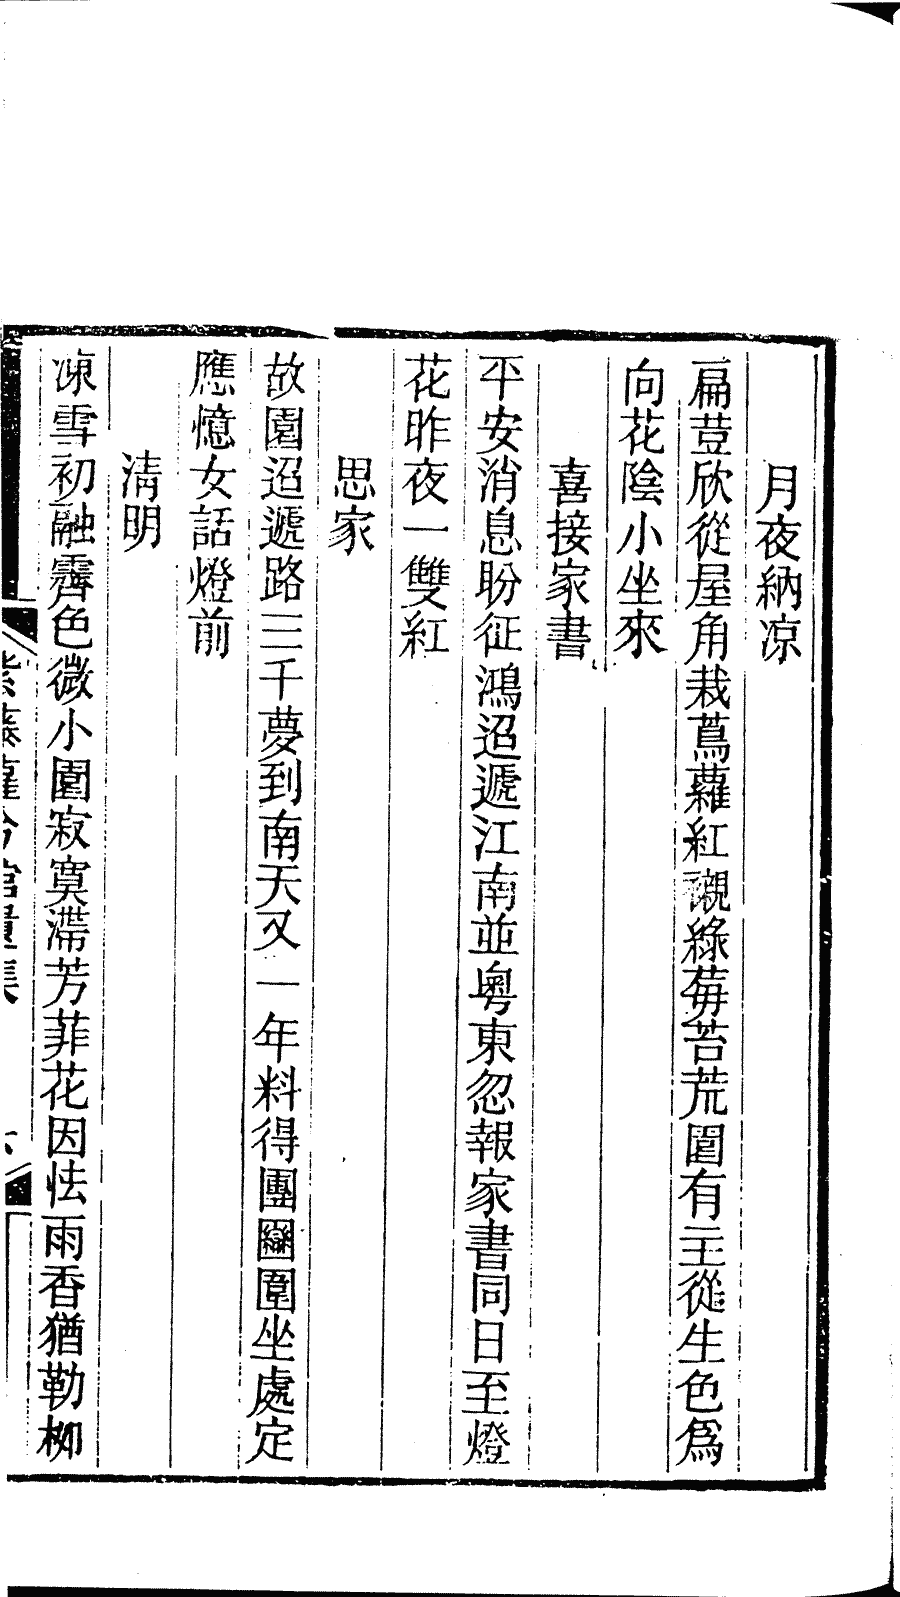 月夜納凉
扁荳欣從屋角栽蔦蘿紅襯綠莓苔荒園有主從生色爲
向花陰小坐來
喜接家書
平安消息盼征鴻迢遞江南並粵東忽報家書同日至燈
花昨夜一雙紅
思家
故園迢遞路三千夢到南天又一年料得團圞圍坐處定
應憶女話燈前
清明
凍雪初融霽色微小園寂寞滯芳菲花因怯雨香猶勒柳
紫藤蘿吟館遺集